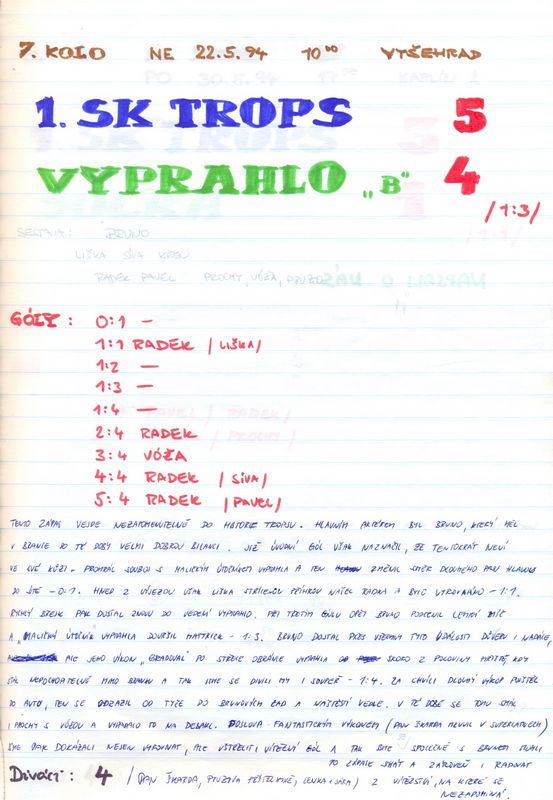 7. KOLO NE 22.5.94 10⁰⁰ VYŠEHRAD
1. SK TROPS 5
VYPRAHLO „B" 4
/1:3/
SESTAVA: BRUNO
LIŠKA SÍVA KŘEN
RADEK PAVEL PROCHY, VÓŽA, PTUŽO
GÓLY: 0:1 —
1:1 RADEK /LIŠKA/
1:2 —
1:3 —
1:4 —
2:4 RADEK
3:4 VÓŽA
4:4 RADEK /SÍVA/
5:4 RADEK /PAVEL/
TENTO ZÁPAS VEJDE NEZAPOMENUTELNĚ DO HISTORIE TROPSU. HLAVNÍM AKTÉREM BYL BRUNO, KTERÝ MĚL
V BRANCE DO TÉ DOBY VELMI DOBROU BILANCI. JIŽ ÚVODNÍ GÓL VŠAK NAZNAČIL, ŽE TENTOKRÁT NENÍ
VE SVÉ KŮŽI - PROHRÁL SOUBOJ S MALIČKÝM ÚTOČNÍKEM VYPRAHLA A TEN ZMĚNIL SMĚR DLOUHÉHO PASU HLAVOU
DO SÍTĚ - 0:1. HNED Z VÝJEZDU VŠAK LIŠKA STŘÍLENOU PŘIHRÁVKOU NAŠEL RADKA A BYLO VYROVNÁNO - 1:1.
RYCHLÝ BREJK PAK DOSTAL ZNOVU DO VEDENÍ VYPRAHLO. PŘI TŘETÍM GÓLU OPĚT BRUNO PODCENIL LETÍCÍ MÍČ
A „MALIČKÝ ÚTOČNÍK" VYPRAHLA DOVRŠIL HATTRICK - 1:3. BRUNO DOSTAL PŘES VŠECHNY TYTO UDÁLOSTI DŮVĚRU I NADÁLE,
ALE JEHO VÝKON „GRADOVAL" PO STŘELE OBRÁNCE VYPRAHLA SKORO Z POLOVINY HŘIŠTĚ, KDY
STÁL NEPOCHOPITELNĚ MIMO BRANKU A TAK JSME SE DIVILI MY I SOUPEŘ - 1:4. ZA CHVÍLI DLOUHÝ VÝKOP PUSTIL
DO AUTU, TEN SE ODRAZIL OD TYČE DO BRUNOVÝCH ZAD A NAŠTĚSTÍ VEDLE. V TÉ DOBĚ SE TOMU SMÁL
I PROCHY S VÓŽOU A VYPADALO TO NA DEBAKL. DOSLOVA FANTASTICKÝM VÝKONEM (PAN ŠKARDA MLUVIL V SUPERLATIVECH)
JSME PAK DOKÁZALI NEJEN VYROVNAT, ALE VSTŘELIT I VÍTĚZNÝ GÓL A TAK JSME SPOLEČNĚ S BRUNEM MOHLI
TO ZÁPALE SMÁT A ZÁROVEŇ I RADOVAT
Z VÍTĚZSTVÍ, NA KTERÉ SE
NEZAPOMÍNÁ.
DIVÁCI: 4 /PAN ŠKARDA, LENKA